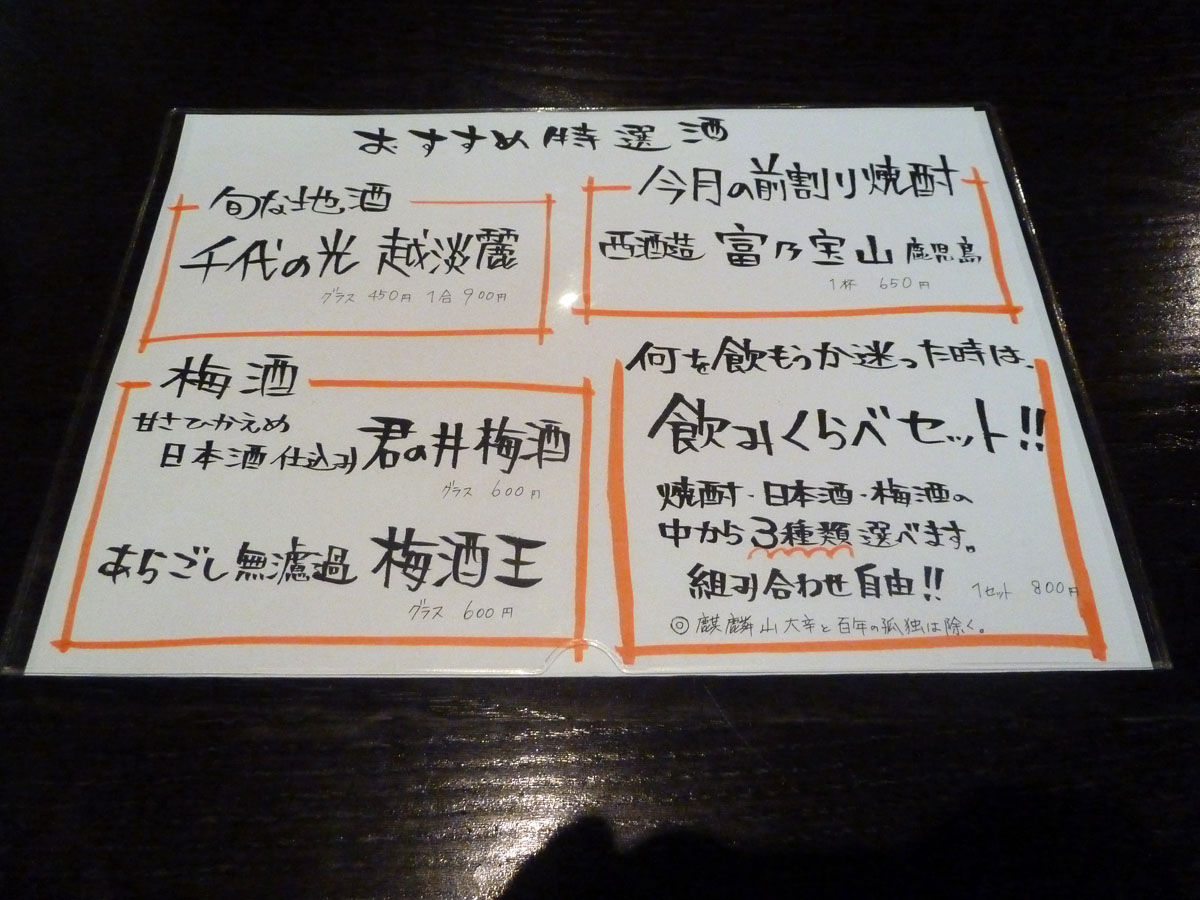 おすすめ特選酒
旬な地酒
千代の光 越淡麗
グラス 450円 1合 900円
今月の前割り焼酎
西酒造 富乃宝山 鹿児島
1杯 650円
梅酒
甘さひかえめ
日本酒仕込み 君の井梅酒
グラス 600円
あらごし無濾過 梅酒王
グラス 600円
何を飲もうか迷った時は、
飲みくらべセット!!
焼酎・日本酒・梅酒の
中から3種類選べます。
組み合わせ自由!! 1セット 800円
◎麒麟山大辛と百年の孤独は除く。